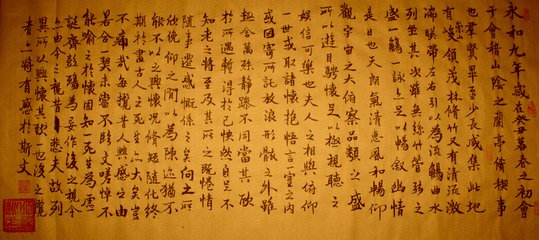 永和九年歲在癸丑暮春之初會
于會稽山陰之蘭亭脩禊事
也群賢畢至少長咸集此地
有峻領茂林脩竹又有清流激
湍暎帶左右引以為流觴曲水
列坐其次雖無絲竹管弦之
盛一觴一詠亦足以暢敘幽情
是日也天朗氣清惠風和暢仰
觀宇宙之大俯察品類之盛
所以遊目騁懷足以極視聽之
娛信可樂也夫人之相與俯仰
一世或取諸懷抱悟言一室之內
或因寄所託放浪形骸之外雖
趣舍萬殊靜躁不同當其欣
於所遇暫得於己怏然自足不
知老之將至及其所之既惓情
隨事遷感慨係之矣向之所
欣俛仰之閒以為陳迹猶不
能不以之興懷況脩短隨化終
期於盡古人云死生亦大矣豈
不痛哉每攬昔人興感之由
若合一契未嘗不臨文嗟悼不
能喻之於懷固知一死生為虛
誕齊彭殤為妄作後之視今
亦由今之視昔悲夫故列
異所以興懷其致一也後之攬
者亦將有感於斯文